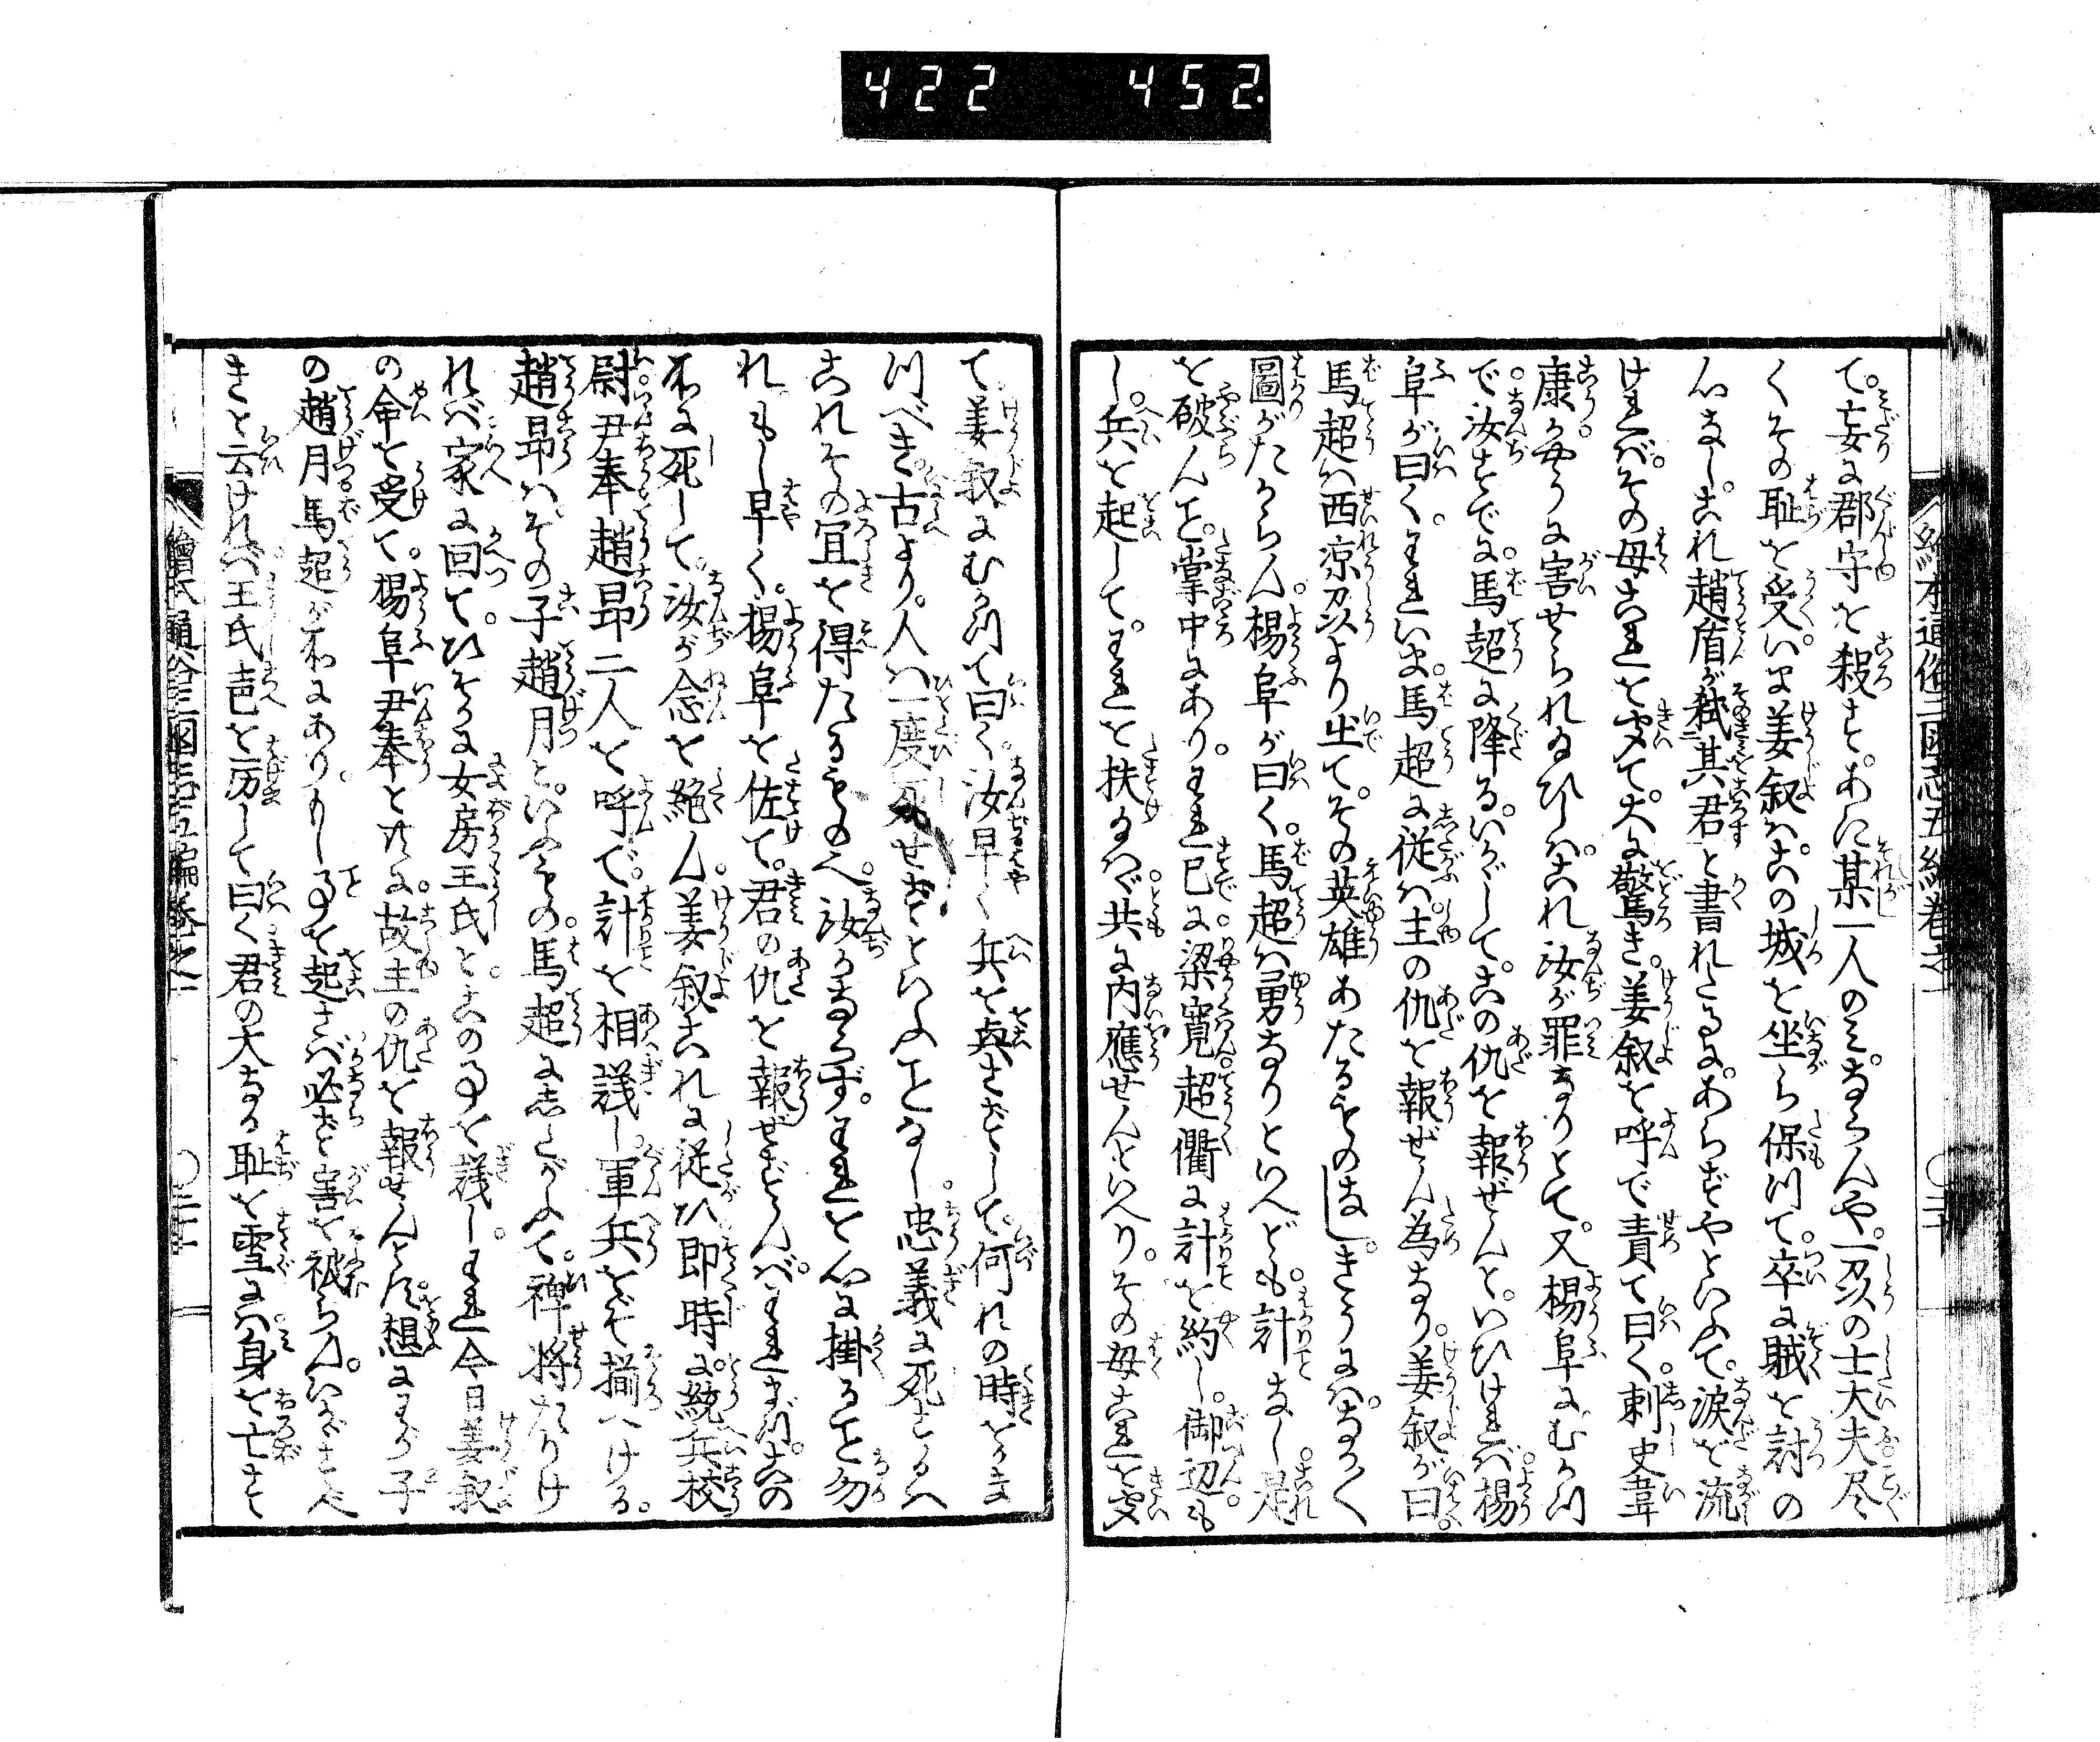 422 452
て。妄に郡守を殺す。あに某一人のみ。ならんや。一州の士大夫尽
くその恥を受く。いま姜叙は。この城を坐ら保つて。卒に賊を討の
心なし。これ趙盾が弑其君と書れたるに。あらずやといふて。涙を流
ければ。その母これを聞て。大に驚き。姜叙を呼で責て曰く。刺史韋
康かやうに害せられ給ひしは。これ汝が罪なりとて。又楊阜にむかつ
で。汝すでに。馬超に降る。いかがして。この仇を報ぜんと。いひければ。楊
阜が曰く。それがしいま。馬超に従は。主の仇を報ぜん為なり。姜叙が曰。
馬超は西涼州より出て。その英雄あたるものなし。きうには。なかく
圖がたからん。楊阜が曰く。馬超は勇なりといへども。計なし。是
を破んこと。掌中にあり。われ已に。梁寛。趙衢に計を約し。御辺も
し。兵を起して。われを扶け給はゞ。共に内應せんといへり。その母これを聞
て姜叙にむかつて曰く。汝早く兵を興さずして。何れの時をかま
つべき。古より。人は一度死せずといふことなし。忠義に死さるへ
これその宜を得たるもの也。汝かならず。われを心に掛ること勿
れ。もし早く。楊阜を佐て。君の仇を報ぜずんば。われまづ。この
ために死して。汝が念を絶ん。姜叙これに従ひ即時に。統兵校
尉。尹奉。趙昂二人を呼で。計を相議し。軍兵をぞ揃へける。
趙昂は。その子趙月と。いふもの。馬超に志たがふて。裨将たりけ
れば。家に回て。ひそかに女房王氏と。この事を議し。われ今日姜叙
の命を受て。楊阜尹奉と共に。故主の仇を報せんとす。想にわが子
の趙月馬超が所にあり。もし事を起さば必ず害を被らん。いかがすべ
きと云ければ。王氏声を厉して曰く君の大なる恥を雪には。身を亡すと
繪本通俗三國志五編巻之二